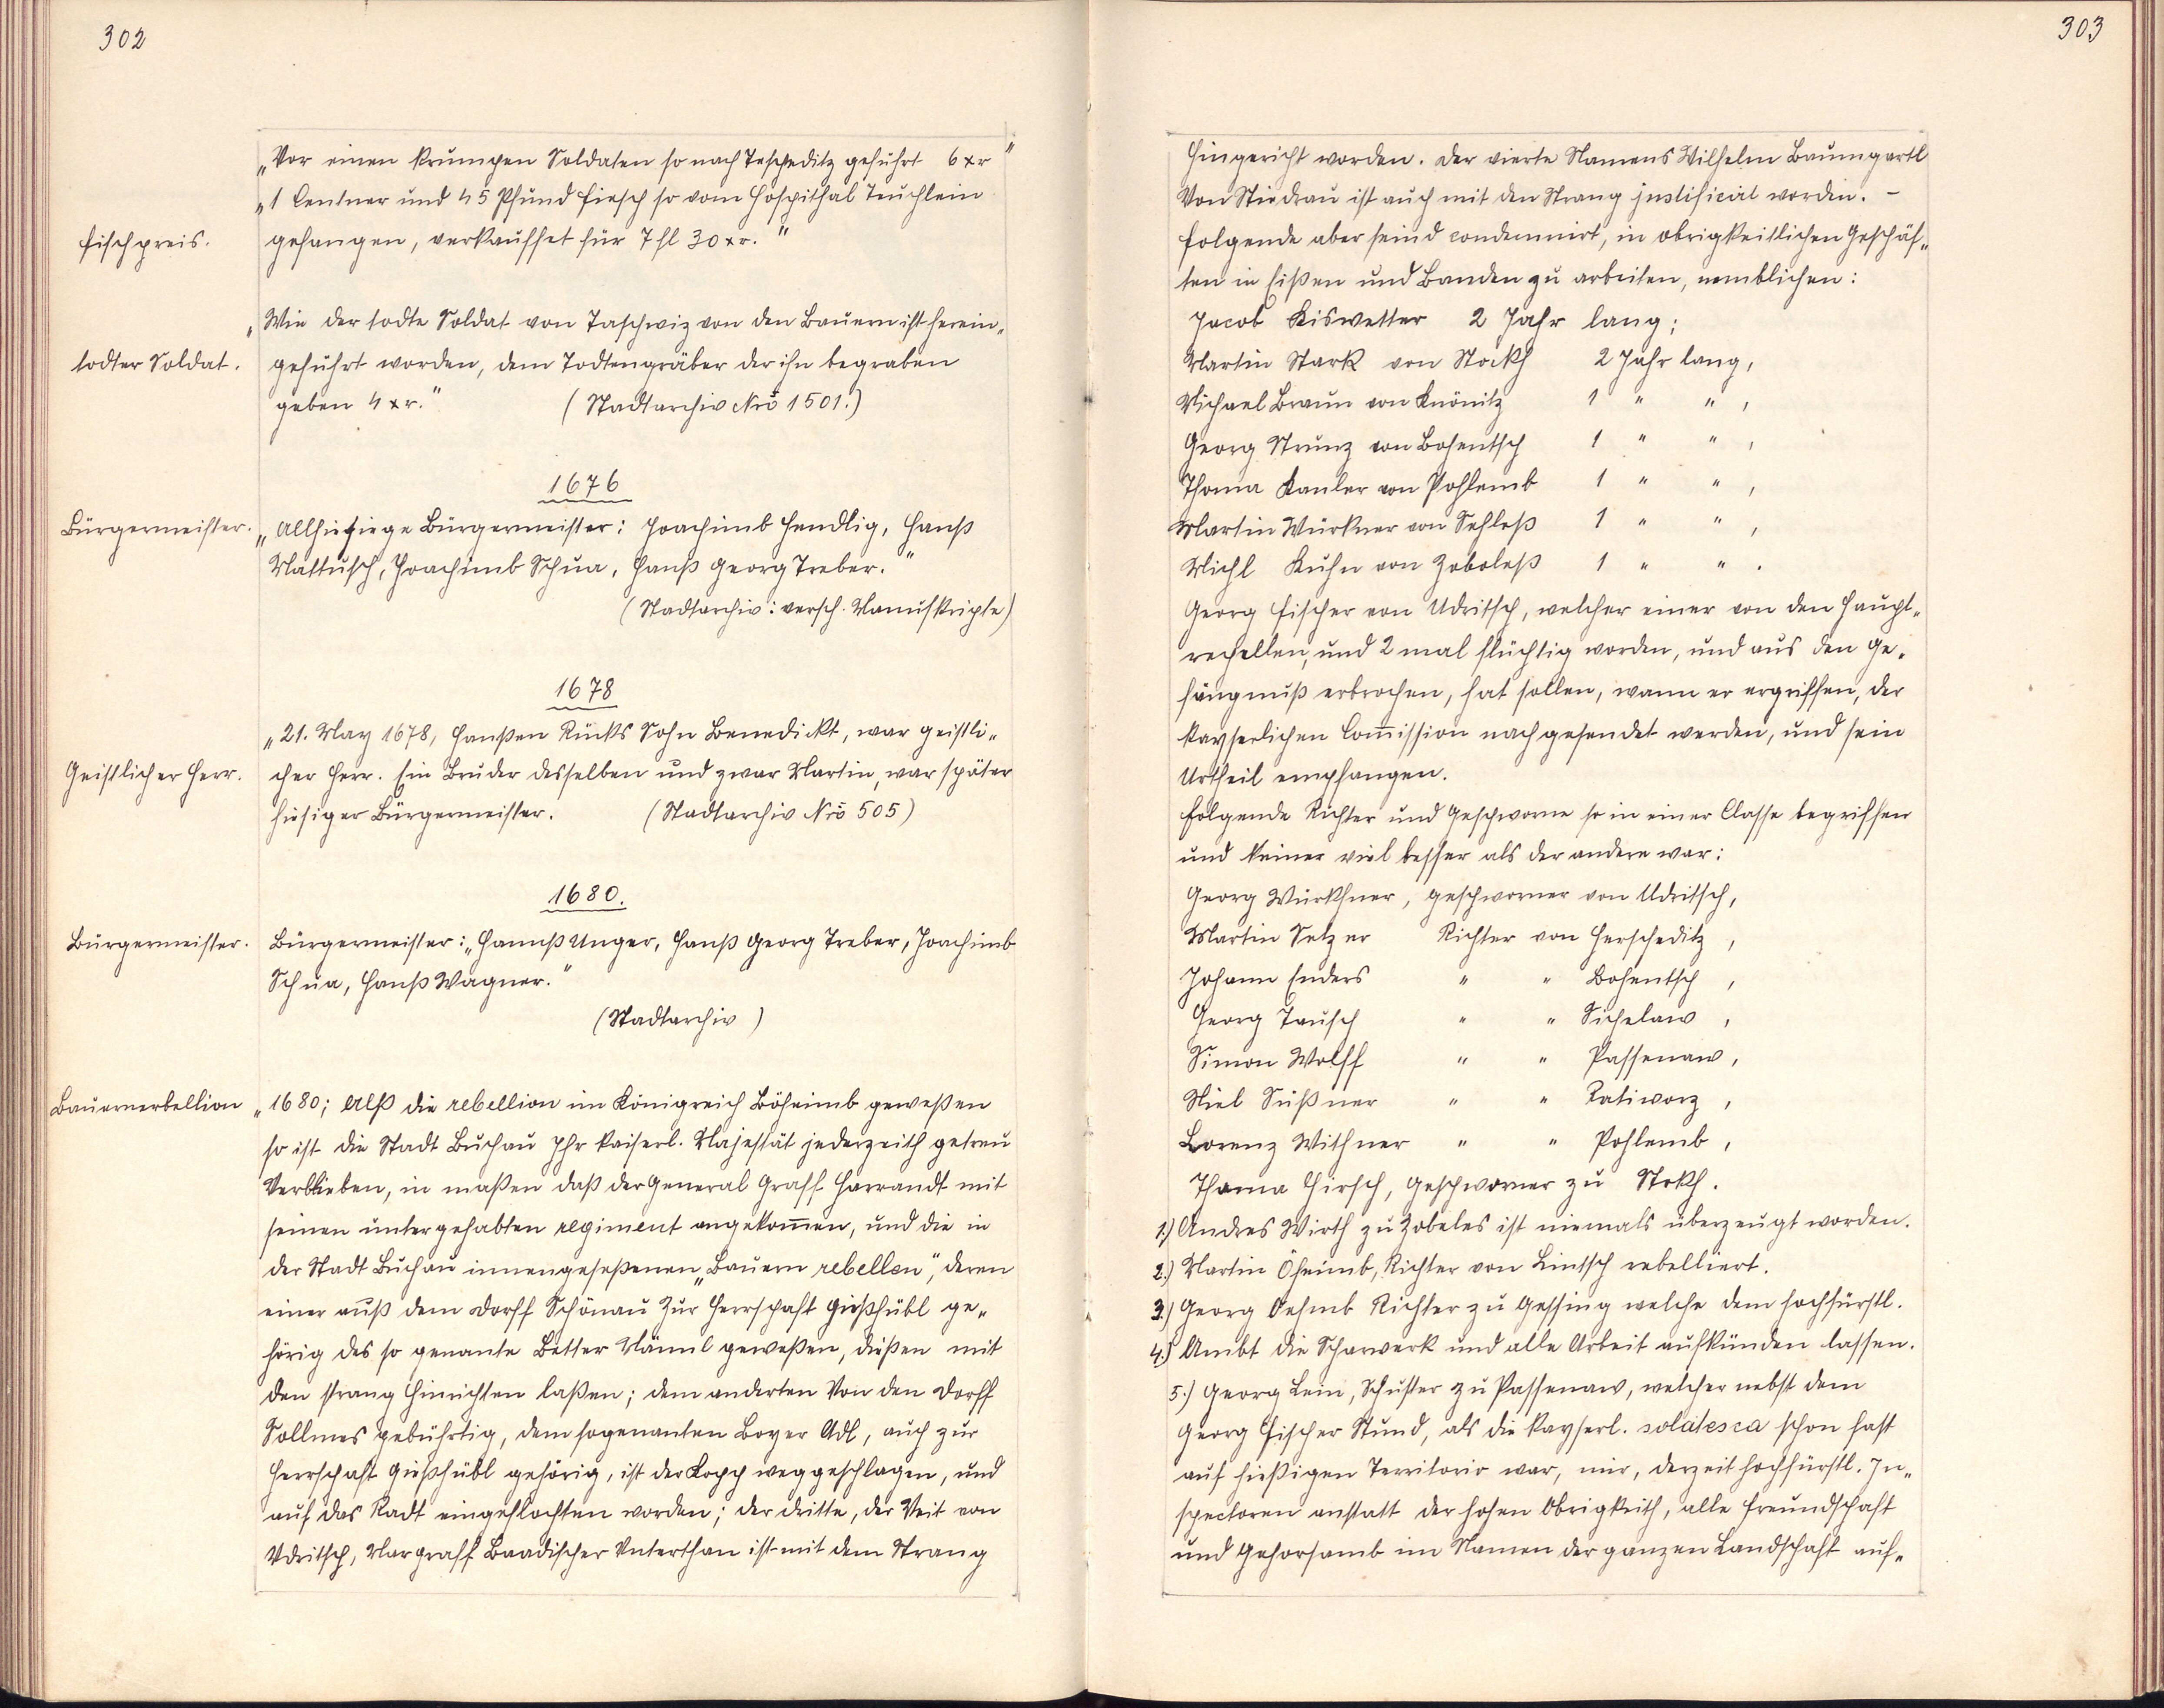 302
„Vor einen krumpen Soldaten so nach Tescheditz geführt 6 xr"
„1 Centner und 45 Pfund Fisch so vom Hospithal Teuchlein
Fischpreis.
gefangen, verkauffet für 7 fl 30 xr."
„Wie der todte Soldat von Taschwiz von den Bauern ist herein„
todter Soldat.
geführt worden, dem Todtengräber der ihn begraben
geben 4 xr." (Stadtarchiv Nro 1501.)
1676
Bürgermeister.
„Allhiesiege Bürgermeister: Joachimb Hendlig, Hanß
Mattusch, Joachimb Schua, Hanß Georg Treber."
(Stadtarchiv: versch. Manuskripte)
1678
„21. May 1678, Hanßen Rücks Sohn Benedickt, war geistli„
Geistlicher Herr.
cher Herr. Ein Bruder desselben und zwar Martin, war später
hiesiger Bürgermeister. (Stadtarchiv Nro 505)
1680.
Bürgermeister.
Bürgermeister: „Hannß Unger, Hanß Georg Treber, Joachimb
Schua, Hanß Wagner."
(Stadtarchiv)
Bauernerbellion
„1680; Alß die rebellion im Königreich Böheimb geweßen
so ist die Stadt Buchau Ihr kaiserl. Majestät jederzeith getreu
Verblieben, in maßen daß der General Graff Harrandt mit
seinen untergehabten regiment angekom̄en, und die in
der Stadt Buchau innengeseßenen „Bauern rebellen", deren
einer auß dem Dorff Schönau Zur Herrschaft Gießhübl ge„
hörig des so genante Better Männl geweßen, dießen mit
den strang Hinrichten laßen; dem anderten Von den Dorff
Sollmes gebührtig, dem sogenanten Boyer Adl, auch zur
Herrschaft Gießhübl gehörig, ist der Kopp weggeschlagen, und
auf das Radt eingeflochten worden; der dritte, der Veit von
Udritsch, Margraff Baadischer Unterthan ist mit dem Strang
303
Hingericht worden. Der vierte Namens Wilhelm Baumgartl
Von Stiedrau ist auch mit den Strang justificirt worden. –
Folgende aber seind condemnirt, in obrigkeitlichen Geschäf„
ten in Eißen und Banden zu arbeiten, nemblichen:
Jacob Kiswetter 2 Jahr lang;
Martin Stark von Stockh 2 Jahr lang,
Michael Braun von Knönitz 1 " " ,
Georg Strunz von Bohentsch 1 " " ,
Thoma Kanler von Pohlemb 1 " " ,
Martin Würkner von Sehleß 1 " " ,
Michl Kuhn von Zoboleß 1 " " .
Georg Fischer von Udritsch, welcher einer von den Haupt„
rechellen, und 2 mal flüchtig worden, und aus den Ge„
fängnuß erbrochen, hat sollen, wann er ergriffen, der
kayserlichen Com̄ission nachgesendet werden, und sein
Urtheil empfangen.
Folgende Richter und Geschworne so in einer Classe begriffen
und keiner viel besser als der andere war:
Georg Würkhner, geschworner von Udritsch,
Martin Setzer Richter von Herscheditz ,
Johann Enders " " Bohentsch ,
Georg Tausch " " Sichelaw ,
Simon Wolff " " Passenaw ,
Niel Süßner " " Ratiworz ,
Lorenz Withner " " Pohlemb ,
Thoma Hirsch, Geschworner zu Stokh.
1.) Andres Wirth zu Zobeles ist niemals überzeugt worden.
2.) Martin Öheimb, Richter von Lintsch rebelliert.
3.) Georg Oehmb Richter zu Gessing welche dem hochfürstl.
4.) Ambt die Scharwerk und alle Arbeit aufkünden lassen.
5.) Georg Lein, Schuster zu Passenaw, welcher nebst dem
Georg Fischer Stund, als die kayserl. soldatesca schon fast
auf hießigen Territorio war, mir, derzeit hochfürstl. In„
spectoren anstatt der hohen Obrigkeith, alle Freundschaft
und Gehorsamb im Namen der ganzen Landschaft auf„